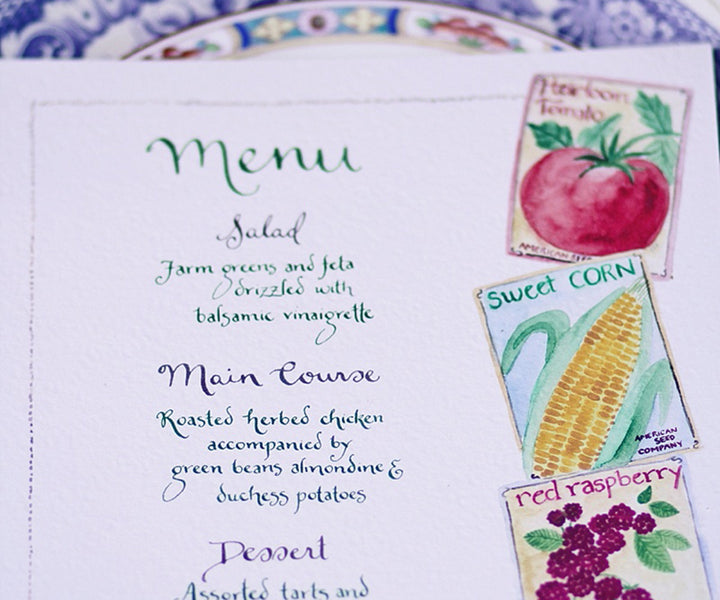 Menu
Salad
Farm greens and feta
drizzled with
balsamic vinaigrette
Main Course
Roasted herbed chicken
accompanied by
green beans almondine &
duchess potatoes
Dessert
Assorted tarts and
Heirloom
Tomato
AMERICAN SEED
sweet CORN
AMERICAN
SEED
COMPANY
red raspberry